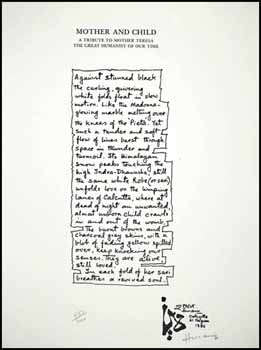 MOTHER AND CHILD
A TRIBUTE TO MOTHER TERESA
THE GREAT HUMANIST OF OUR TIME
Against Stunned black
the curling, quivering
white folds float in slow
motion. Like the Madona-
glowing marble melting over
the knees of the 'Pieta'. Yet
such a tender and soft
flow of lines burst through
space in thunder and
turmoil. Its Himalayan
snow peaks touching the
high Indra-Dhanusha. Still
the same white Robe (or sari)
unfolds love on the limping
lanes of Calcutta, where at
dead of night an unwanted,
almost unborn child crawls
in and out of the womb.
The burnt browns and
charcoal grey skins, with a
blot of fading yellow spilled
over, keep knocking our
senses. They are alive,
still loved.
In each fold of her sari
breathes a revived soul.
Calcutta